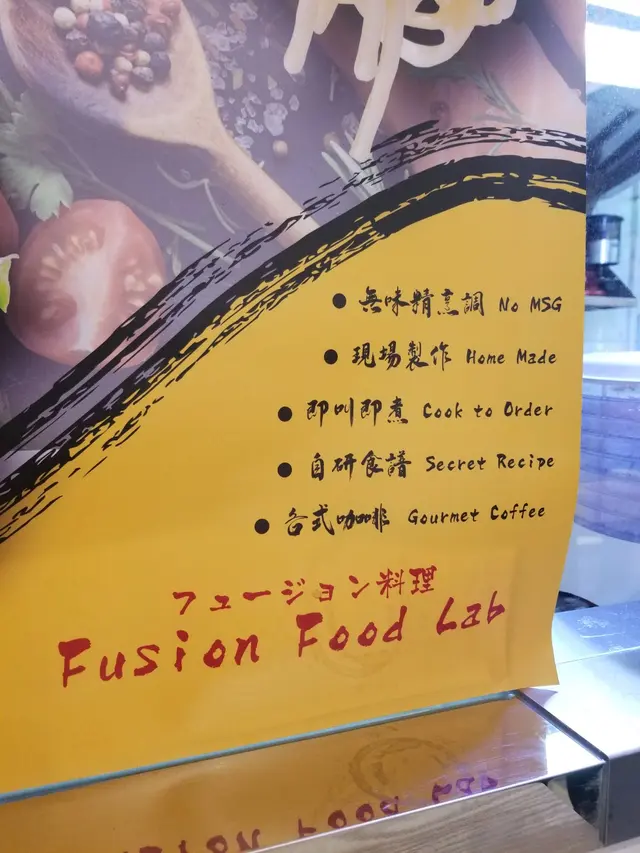 ● 無味精烹調 No MSG
● 現場製作 Home Made
● 即叫即煮 Cook to Order
● 自研食譜 Secret Recipe
● 各式咖啡 Gourmet Coffee
フュージョン料理
Fusion Food Lab